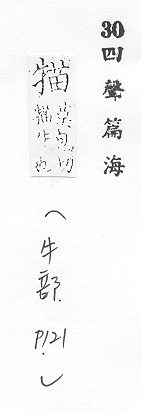 30 四聲篇海
莫包切
牛也
(牛部 P121)